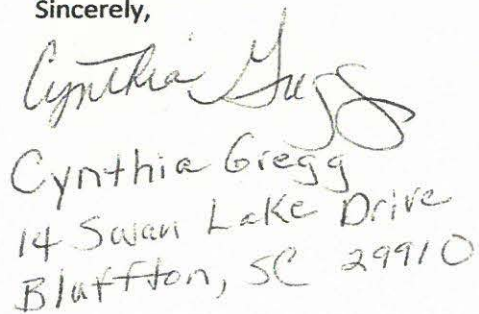 Sincerely,
Cynthia Gregg
Cynthia Gregg
14 Swan Lake Drive
Bluffton, SC 29910